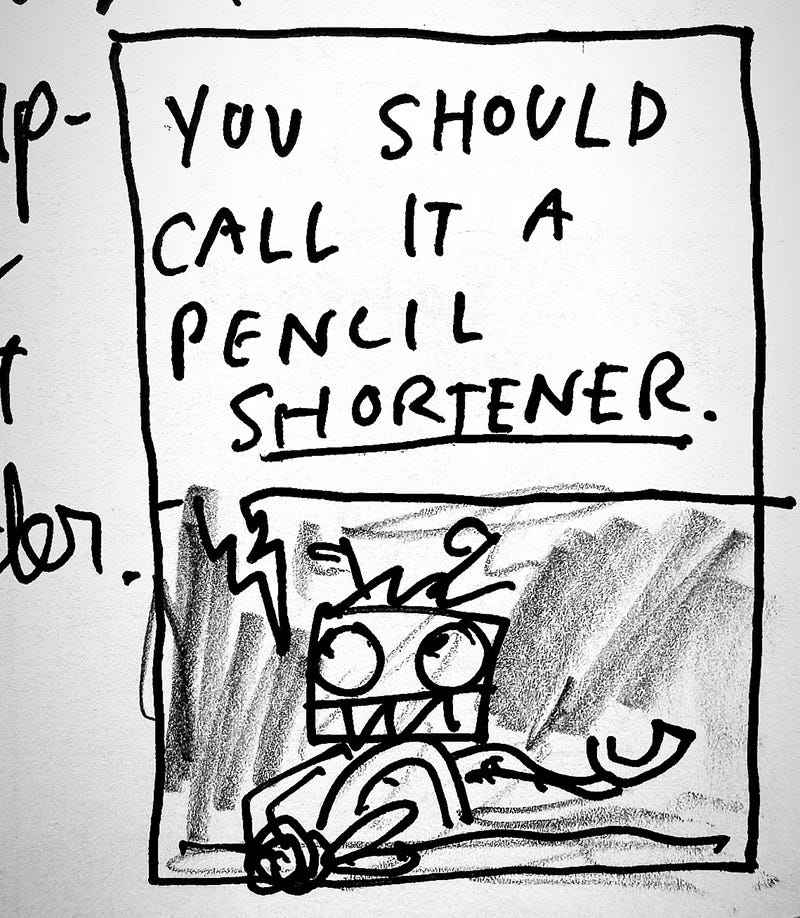 YOU SHOULD
CALL IT A
PENCIL
SHORTENER.